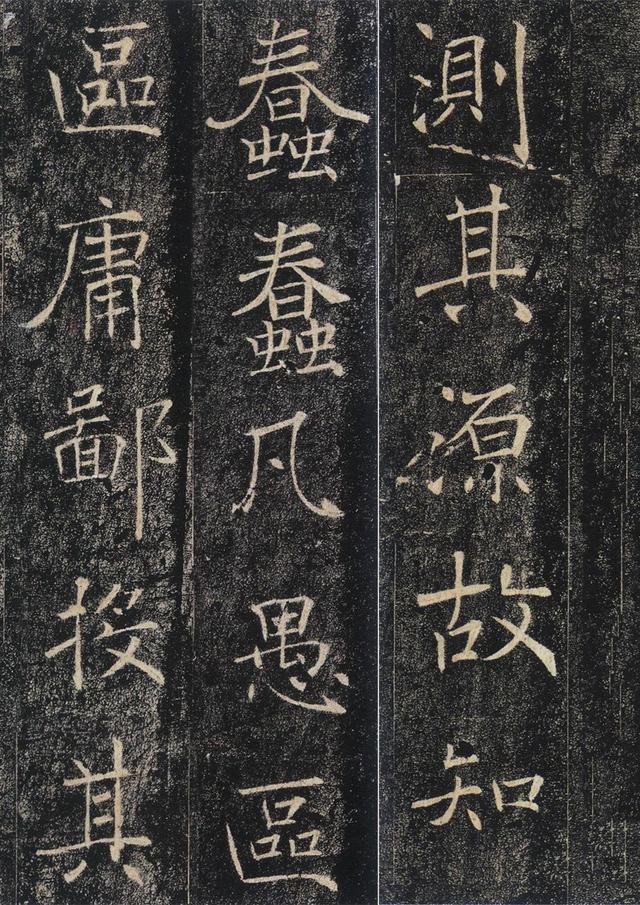 測其源故知
蠢蠢凡愚區
區庸鄙投其